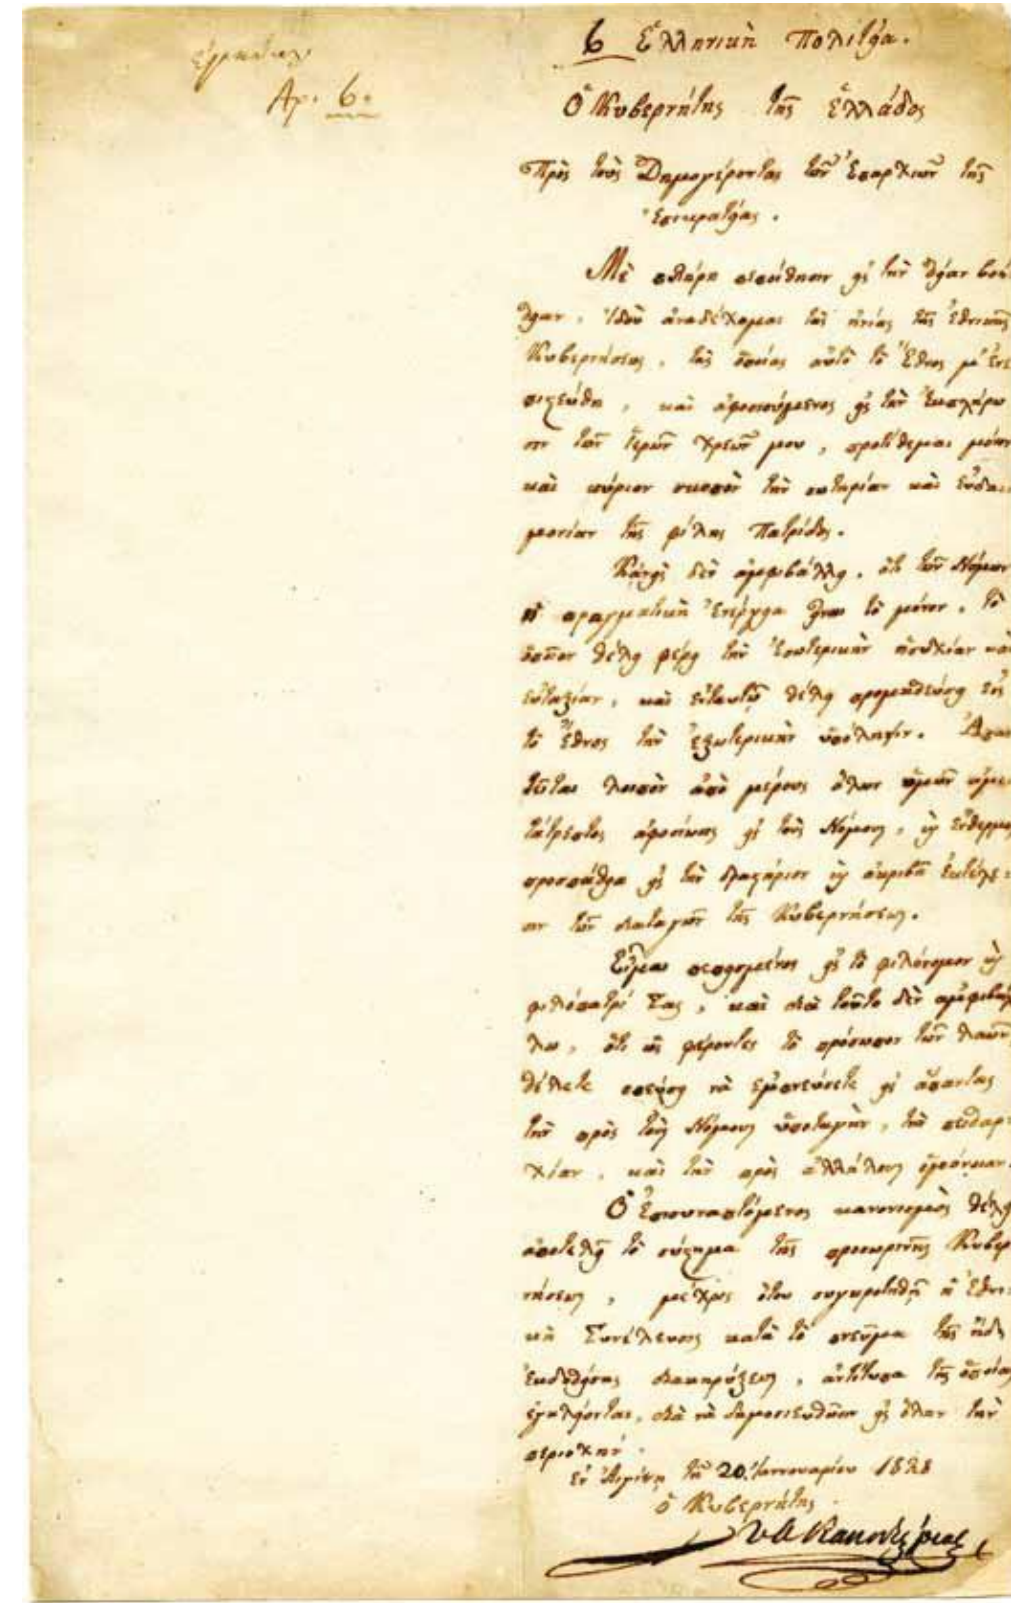 Ἀρ. 6.
6 Ἑλληνικὴ Πολιτεία.
Ὁ Κυβερνήτης τῆς Ἑλλάδος
Πρὸς τοὺς Δημογέροντας τῶν Ἐπαρχιῶν τῆς
Ἐπικρατείας.
Μὲ πλήρη πεποίθησιν εἰς τὴν θείαν βοή
θειαν, ἰδοὺ ἀναδέχομαι τὰς ἡνίας τῆς Ἐθνικῆς
Κυβερνήσεως, τὰς ὁποίας αὐτὸ τὸ Ἔθνος μ' ἐνε
πιστεύθη, καὶ ἀφοσιούμενος εἰς τὴν ἐκπλήρω
σιν τῶν ἱερῶν χρεῶν μου, προτίθεμαι μόνον
καὶ κύριον σκοπὸν τὴν σωτηρίαν καὶ εὐδαι
μονίαν τῆς φίλης Πατρίδος.
Κἀνεὶς δὲν ἀμφιβάλλει, ὅτι τῶν Νόμων
ἡ πραγματικὴ ἐνέργεια εἶναι τὸ μόνον, τὸ
ὁποῖον θέλει φέρει τὴν ἐσωτερικὴν ἡσυχίαν καὶ
εὐταξίαν, καὶ ἐνταυτῷ θέλει προμηθεύσει εἰς
τὸ Ἔθνος τὴν ἐξωτερικὴν ὑπόληψιν. Ἀπαι
τεῖται λοιπὸν ἀπὸ μέρους ὅλων ὑμῶν ἀμε
τάτρεπτος ἀφοσίωσις εἰς τοὺς Νόμους, καὶ ἔνθερμος
προσπάθεια εἰς τὴν καὶ ἀκριβῆ ἐκτέλε=
σιν τῶν διαταγῶν τῆς Κυβερνήσεως.
Εἶμαι πεπεισμένος εἰς τὸ φιλόνομον καὶ
φιλόπατρί Σας, καὶ διὰ τοῦτο δὲν ἀμφιβάλ
λω, ὅτι ὡς φέροντες τὸ πρόσωπον τῶν λαῶν,
θέλετε σπεύσει νὰ ἐμπνεύσετε εἰς ἅπαντας
τὴν πρὸς τοὺς Νόμους ὑποταγὴν, τὴν πειθαρ
χίαν, καὶ τὴν πρὸς ἀλλήλους ὁμόνοιαν.
Ὁ ἐπισυναπτόμενος κανονισμὸς θέλει
ἀποτελεῖ τὸ σύστημα τῆς προσωρινῆς Κυβερ
νήσεως, μέχρις ὅτου συγκροτηθῇ ἡ Ἐθνι
κὴ Συνέλευσις κατὰ τὸ πνεῦμα τῆς ἤδη
ἐκδοθείσης διακηρύξεως, ἀντίτυπα τῆς ὁποίας
ἐγκλείονται, διὰ νὰ δημοσιευθῶσιν εἰς ὅλην τὴν
περιοχήν.
Ἐν Αἰγίνῃ τῇ 20. Ἰαννουαρίου 1828
ὁ Κυβερνήτης.
Ι Α Καποδίστριας